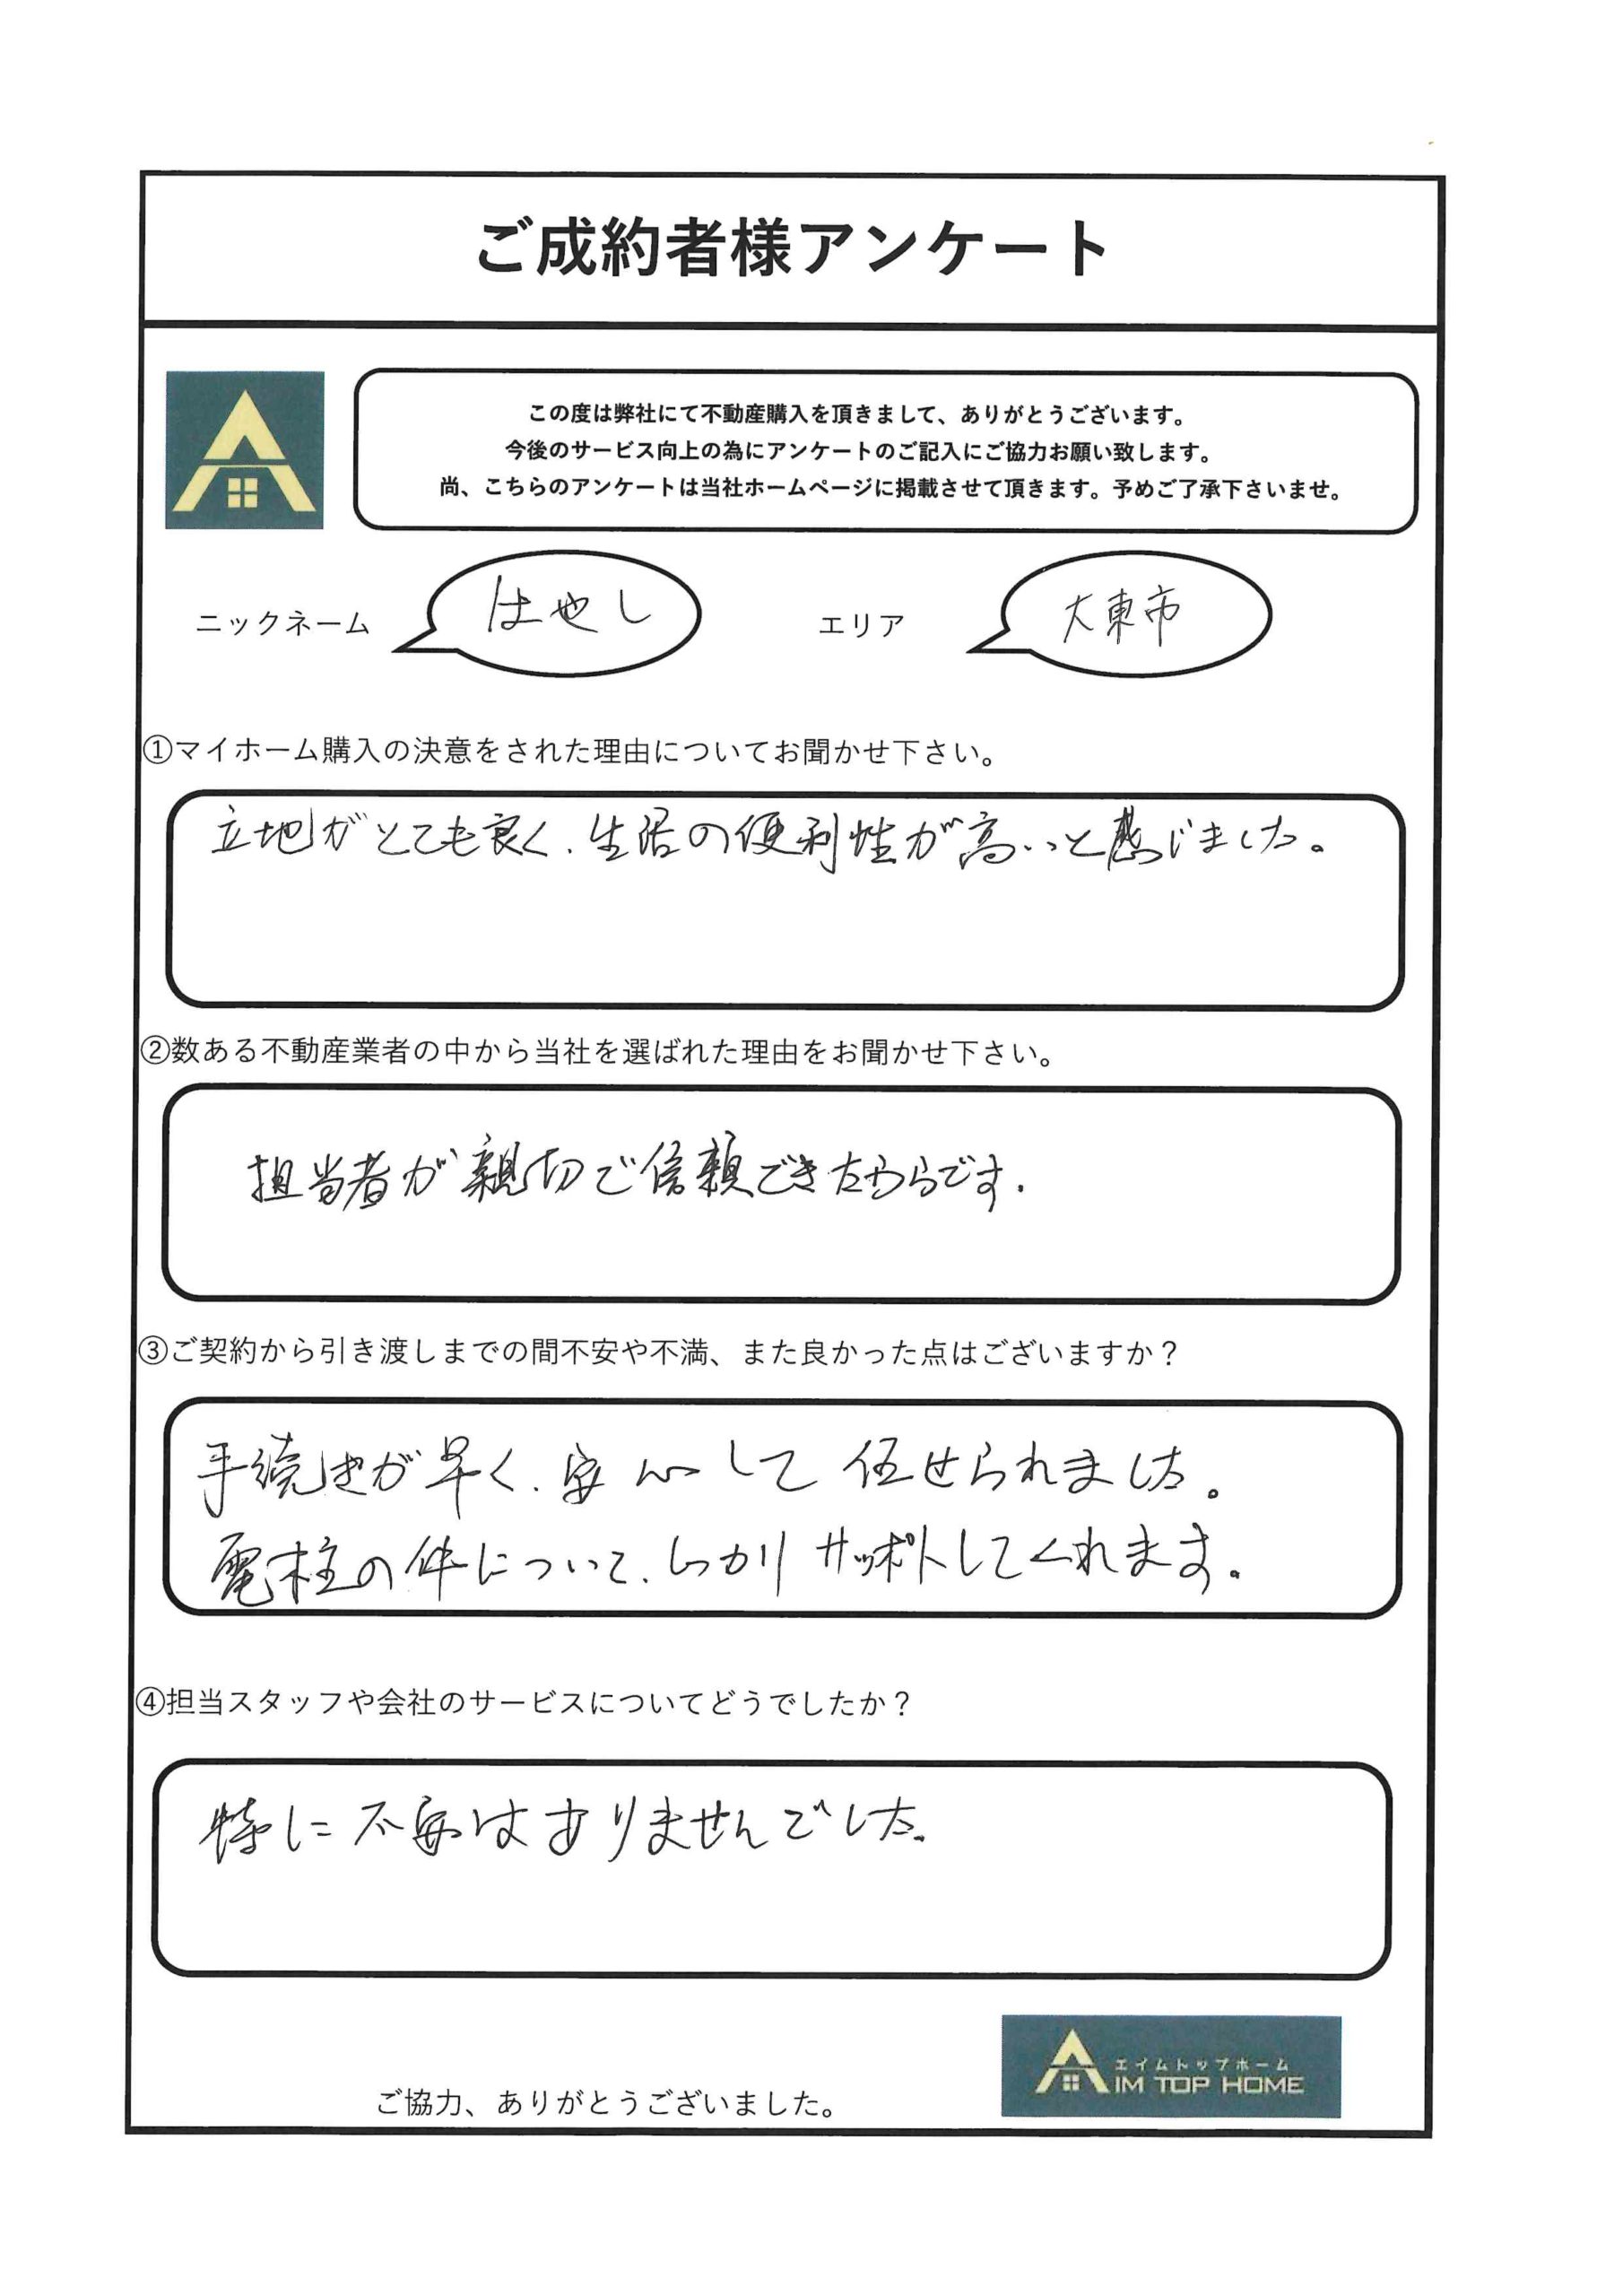 ご成約者様アンケート
この度は弊社にて不動産購入を頂きまして、ありがとうございます。
今後のサービス向上の為にアンケートのご記入にご協力お願い致します。
尚、こちらのアンケートは当社ホームページに掲載させて頂きます。予めご了承下さいませ。
ニックネーム はやし エリア 大東市
①マイホーム購入の決意をされた理由についてお聞かせ下さい。
立地がとても良く、生活の便利性が高いと感じました。
②数ある不動産業者の中から当社を選ばれた理由をお聞かせ下さい。
担当者が親切で信頼できたからです.
③ご契約から引き渡しまでの間不安や不満、また良かった点はございますか？
手続きが早く、安心して任せられました。
電柱の件について、しっかりサッポトしてくれます。
④担当スタッフや会社のサービスについてどうでしたか？
特に不安はありませんでした。
エイムトップホーム
AIM TOP HOME
ご協力、ありがとうございました。